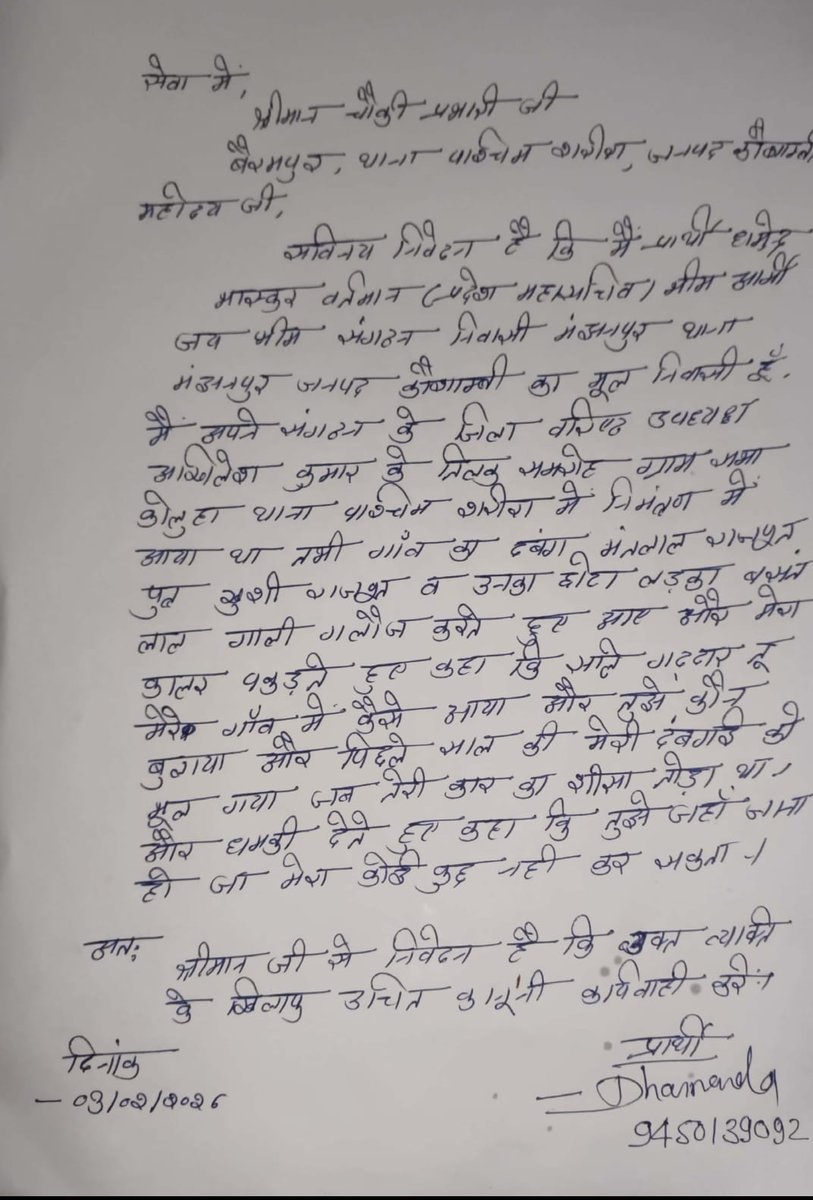 सेवा में,
श्रीमान चौकी प्रभारी जी
बैरमपुर, थाना पश्चिम शरीरा, जनपद कौशाम्बी
महोदय जी,
सविनय निवेदन है कि मैं प्रार्थी धर्मेन्द्र
भास्कर वर्तमान (प्रदेश महासचिव) भीम आर्मी
जय भीम संगठन निवासी मंझनपुर थाना
मंझनपुर जनपद कौशाम्बी का मूल निवासी हूँ.
मैं अपने संगठन के जिला वरिष्ठ उपाध्यक्ष
अखिलेश कुमार के तिलक समारोह ग्राम सभा
कोलुहा थाना पश्चिम शरीरा में निमंत्रण में
आया था तभी गाँव का दबंग मंतलाल राजपूत
पुत्र खुशी राजपूत व उनका छोटा लड़का बसंत
लाल गाली गलौज करते हुए आए और मेरा
कालर पकड़ते हुए कहा कि साले गद्दार तू
मेरे गाँव में कैसे आया और तुझे कौन
बुलाया और पिछले साल की मेरी दंबगई को
भूल गया जब तेरी कार का शीसा तोड़ा था।
और धमकी देते हुए कहा कि तुझे जहाँ जाना
हो जा मेरा कोई कुछ नही कर सकता।
अतः श्रीमान जी से निवेदन है कि उक्त व्यक्ति
के खिलाफ उचित कानूंनी कार्यवाही करें।
दिनांक
- 03/02/2026
प्रार्थी
Dharmendra
9450139092